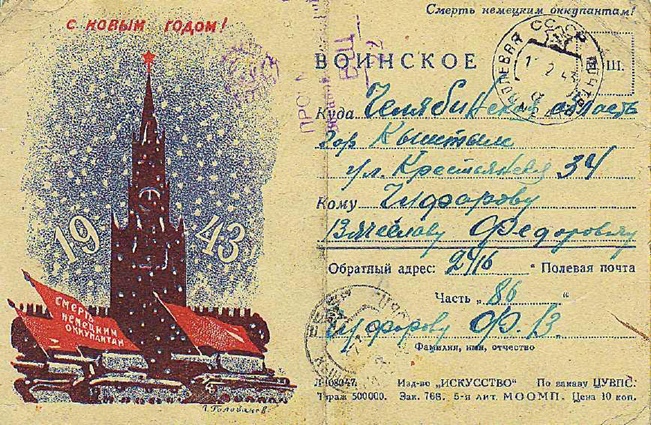 С НОВЫМ ГОДОМ!
1943
СМЕРТЬ
НЕМЕЦКИМ
ОККУПАНТАМ
Г. Голованов.
Смерть немецким оккупантам!
ВОИНСКОЕ
Куда Челябинская область
гор Кыштым
ул. Крестьянская 34
Кому
Вячеславу Федоровичу
Обратный адрес: 2416 " Полевая почта
Часть „ 86 "
Ф. В.
Фамилия, имя, отчество
Изд-во „ИСКУССТВО" По заказу ЦУВПС.
Тираж 500000. Зак. 768. 5-я лит. МООМП. Цена 10 коп.